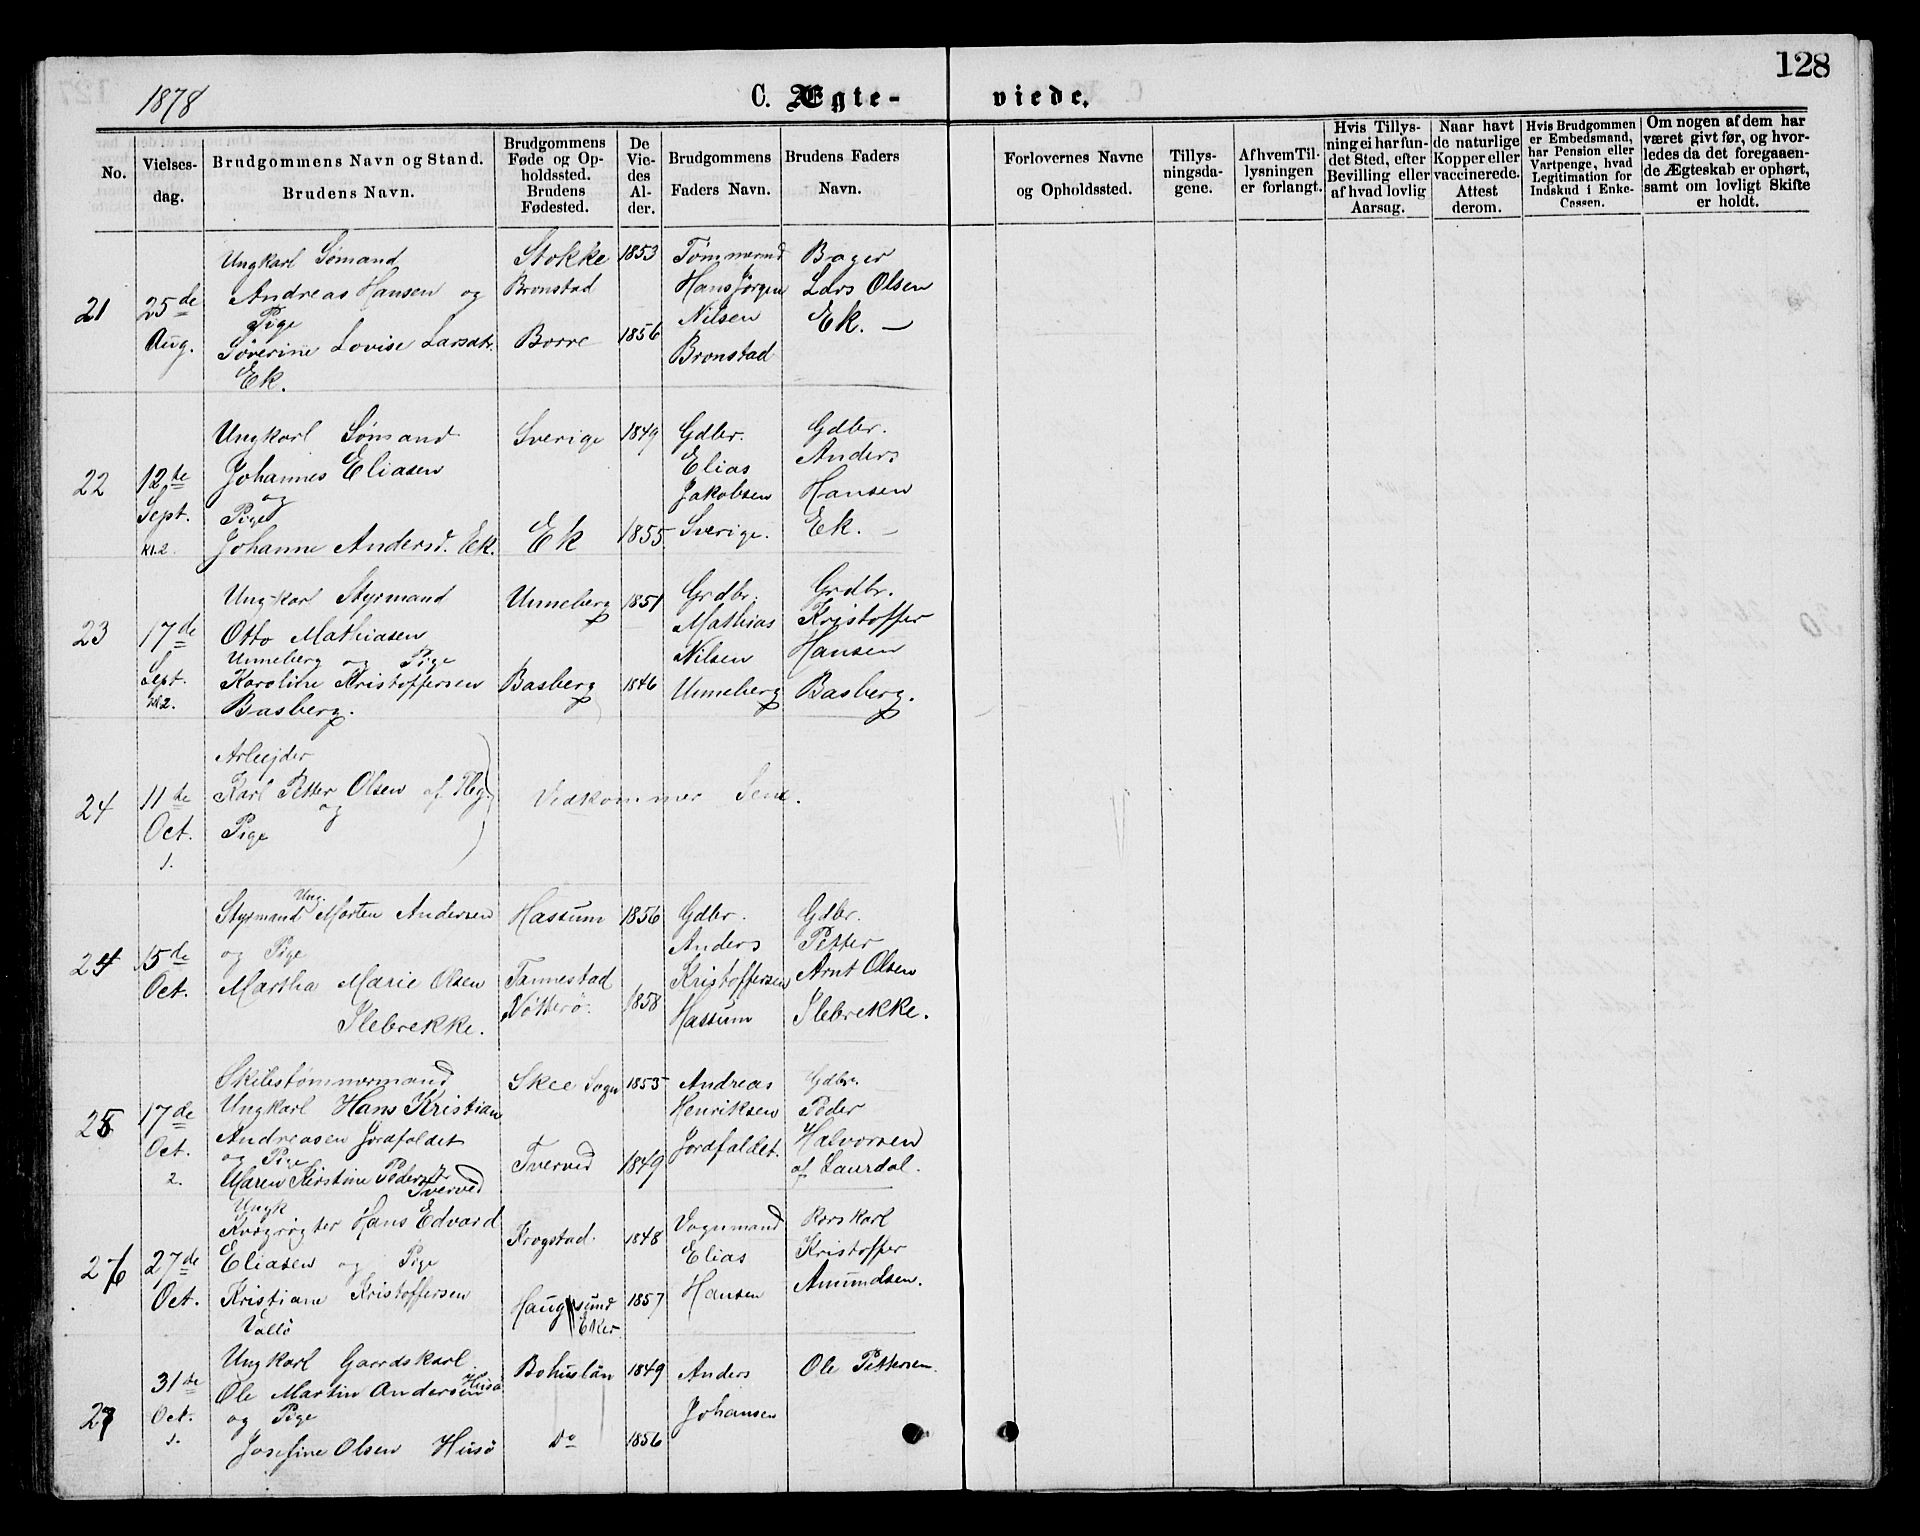 128
1878
C. Ægte- viede.
No.
Vielses-
dag.
Brudgommens Navn og Stand.
Brudens Navn.
Brudgommens
Føde og Op-
holdssted.
Brudens
Fødested.
De
Vie-
des
Al-
der.
Brudgommens
Faders Navn.
Brudens Faders
Navn.
Forlovernes Navne
og Opholdssted.
Tillys-
ningsda-
gene.
Af hvem Til-
lysningen
er forlangt.
Hvis Tillys-
ning ei har fun-
det Sted, efter
Bevilling eller
af hvad lovlig
Aarsag.
Naar havt
de naturlige
Kopper eller
vaccinerede.
Attest
derom.
Hvis Brudgommen
er Embedsmand,
har Pension eller
Vartpenge, hvad
Legitimation for
Indskud i Enke-
Cassen.
Om nogen af dem har
været givt før, og hvor-
ledes da det foregaaen-
de Ægteskab er ophørt,
samt om lovligt Skifte
er holdt.
21
25de
Aug.
Ungkarl Sømand
Andreas Hansen og
Pige
Søverine Lovise Larsdtr.
Ek.
Stokke
Bronstad
Borre
1853
1856
Tømmermd
Hans Jørgen
Nilsen
Bronstad
Bager
Lars Olsen
Ek. —
22
12te
Sept.
kl. 2.
Ungkarl Sømand
Johannes Eliasen
og
Pige
Johanne Andersd. Ek.
Sverige
Ek
1849
1855
Gdbr.
Elias
Jakobsen
Sverige.
Gdbr.
Anders
Hansen
Ek. —
23
17de
Sept.
kl 2.
Ungkarl Styrmand
Otto Mathiasen
Unneberg og Pige
Karoline Kristoffersen
Basberg.
Unneberg
Basberg
1851
1846
Grdbr.
Mathias
Nilsen
Unneberg
Grdbr.
Kristoffer
Hansen
Basberg.
24
11te
Oct.
1.
Arbejder
Karl Petter Olsen af Tbg.
og
Pige
Vedkommer Sem.
24
15de
Oct.
Ung.
Styrmand Morten Andersen
og Pige
Martha Marie Olsen
Ilebrekke.
Hassum
Tannestad
Nøtterø.
1856
1858
Gdbr.
Anders
Kristoffersen
Hassum
Gdbr.
Petter
Arnt Olsen
Ilebrekke.
25
17de
Oct.
2.
Skibstømmermand
Ungkarl Hans Kristian
Andreasen Jordfaldet
og Pige
Maren Kirstine Pedersdtr
Tverved
Skee Sogn
Tverved
1853
1849
Andreas
Henriksen
Jordfaldet.
Gdbr.
Peder
Halvorsen
af Laurdal.
26
27de
Oct.
Ungk
Kvægrøgter Hans Edvard
Eliasen og Pige
Kristiane Kristoffersen
Vallö
Krogstad.
Haugsund
Eker
1848
1857
Vognmand
Elias
Hansen
Kristoffer
Amundsen.
27
31te
Oct.
1.
Ungkarl Gaardskarl
Ole Martin Andersen Husö
og Pige
Josefine Olsen Husö
Bohuslän
Do
1849
1856
Anders
Johansen
Ole Pettersen.